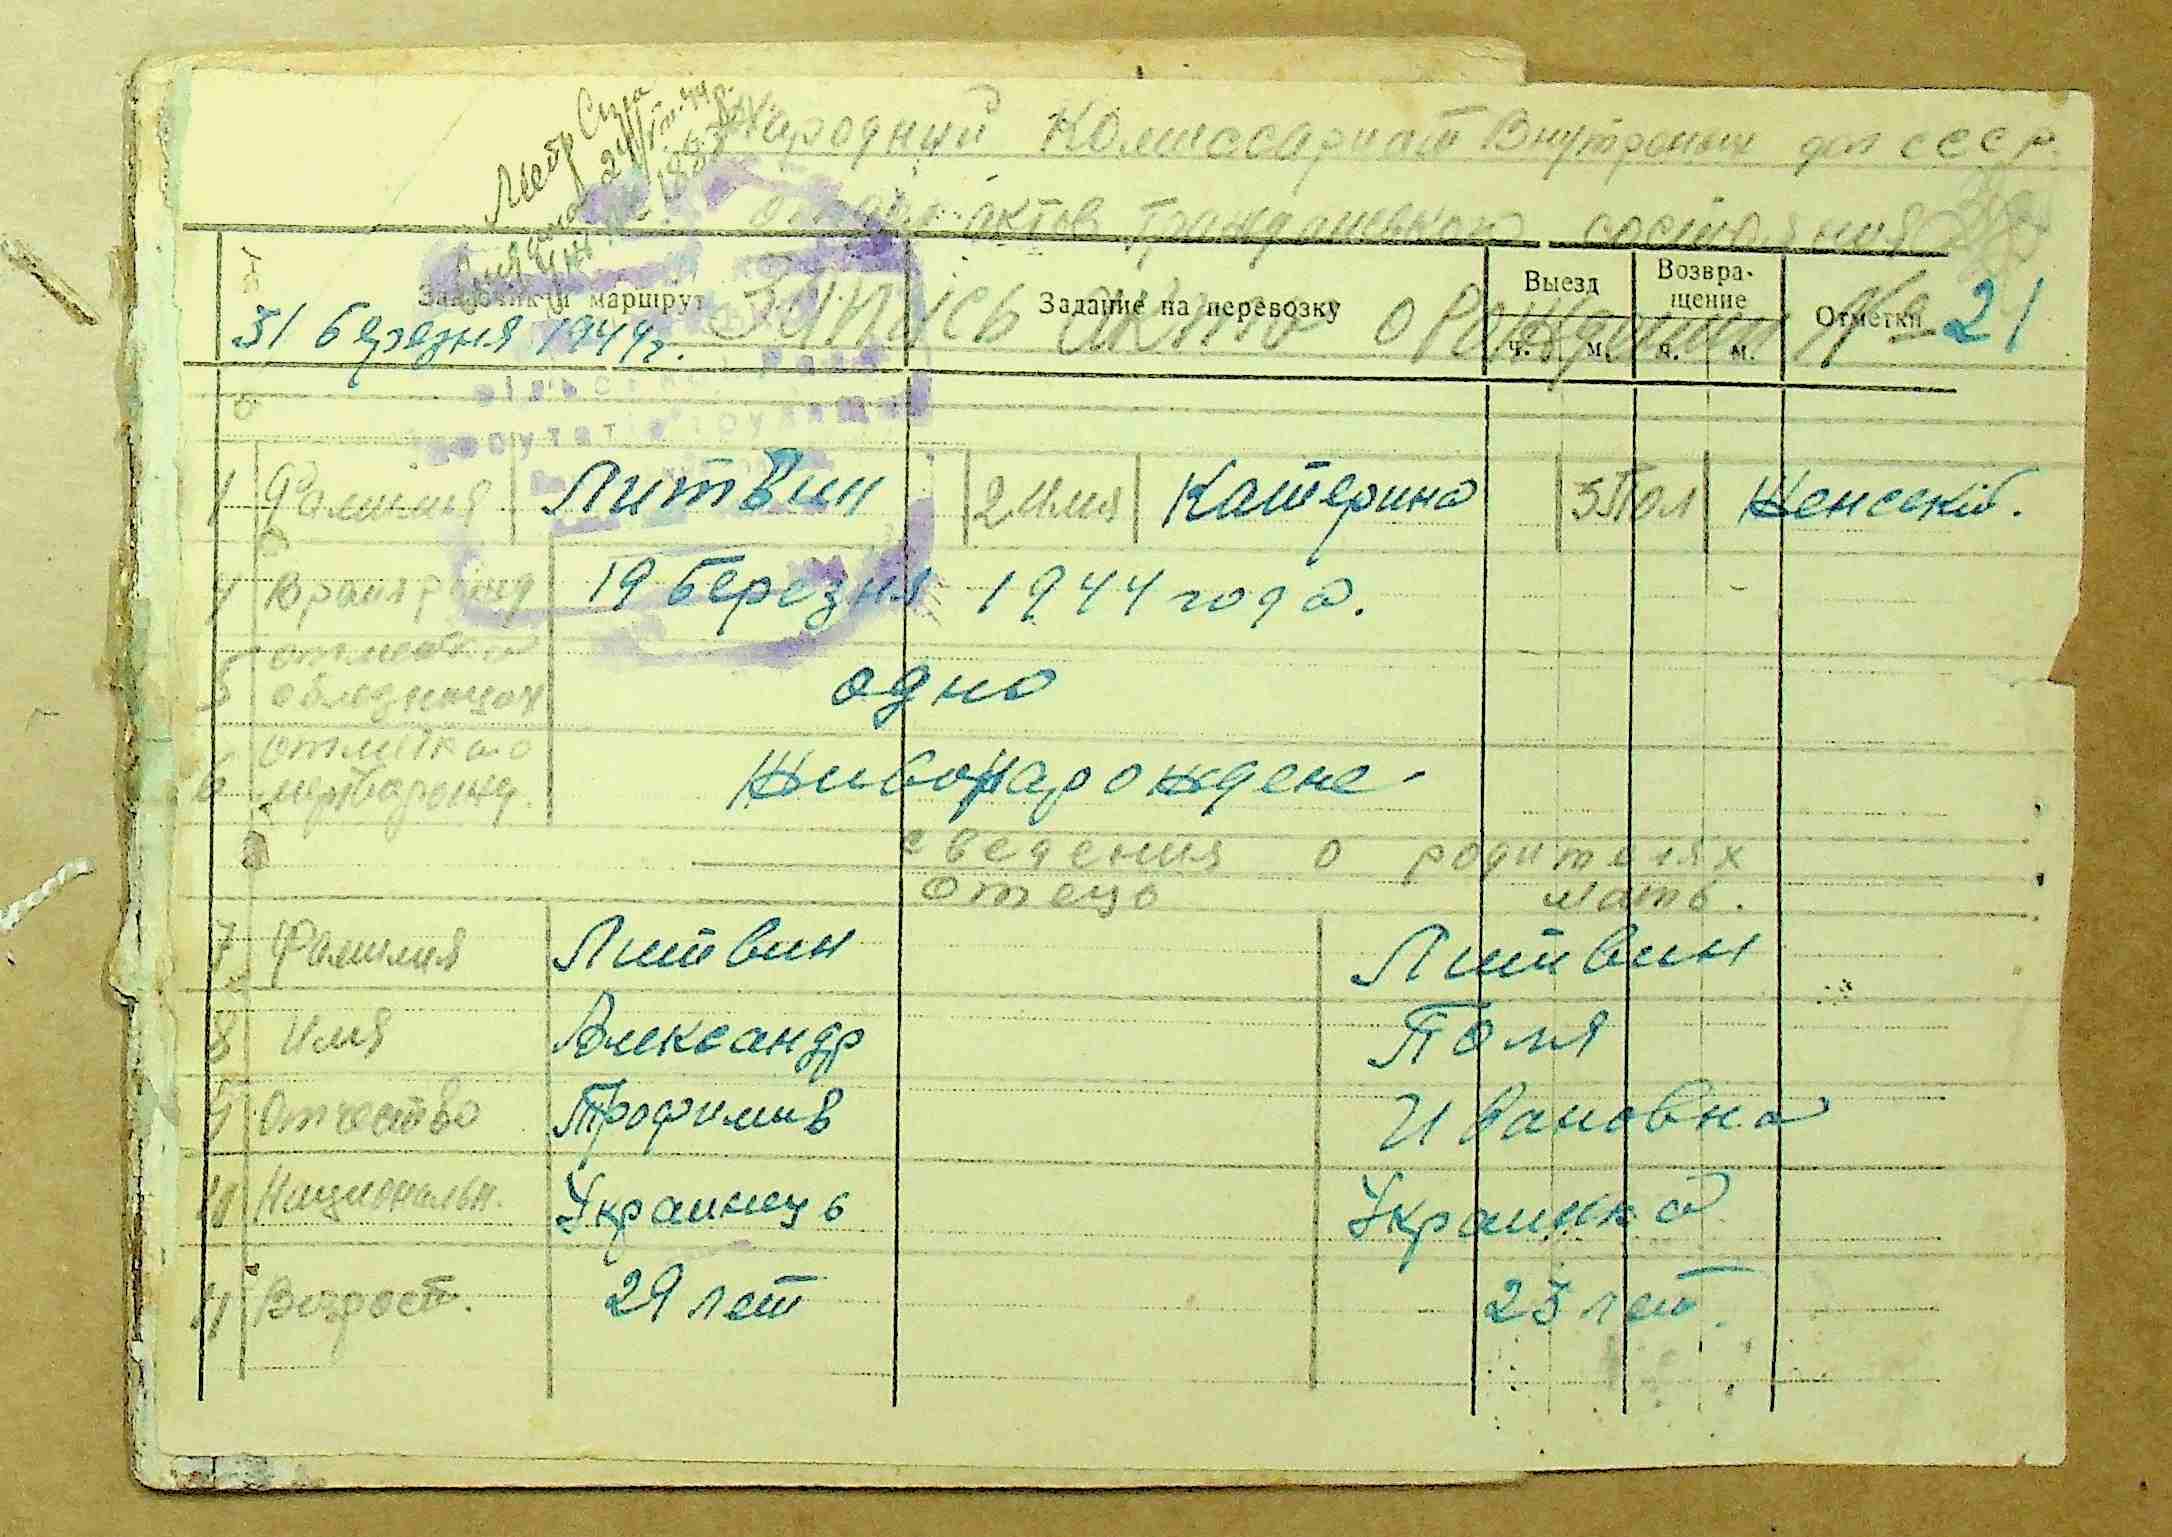 Народний Комиссариат Внутренних дел СССР
отдел актов гражданского состояния
Заказчик и маршрут Задание на перевозку Выезд Возвра- Отметки
щение
ч. м. ч. м.
31 березня 1944г. Запись акта о Рождении № 21
1 Фамилия Литвин 2 Имя Катерина 3 Пол Женский.
4 Время рожд 19 березня 1944 года.
5 отметка
о близнецах одно
6 отметка о
мертворожд. живонарождене
сведения о родителях
отець мать.
7 Фамилия Литвин Литвин
8 Имя Александр Поля
9 Отчество Трофимив Ивановна
10 Национальн. Украинець Украинка
11 Возраст. 29 лет 23 лет.